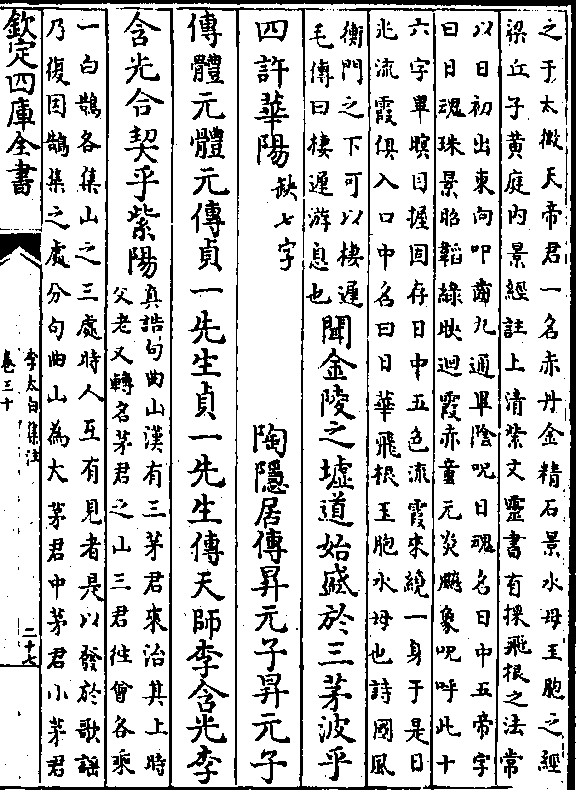 之于太微天帝君一名赤丹金精石景水母玉胞之經
梁丘子黃庭內景經註上清紫文靈書有採飛根之法常
以日初出東向叩齒九通畢隂呪日魂名日中五帝字
曰日魂珠景昭韜綠映迴霞赤童元炎飈象呪呼此十
六字畢瞑目握固存日中五色流霞來繞一身于是日
光流霞俱入口中名曰日華飛根玉胞水母也詩國風
衡門之下可以棲遲
毛傳曰棲遲游息也
聞金陵之墟道始盛於三茅波乎
四許華陽
缺七字
陶隱居傳昇元子昇元子
傳體元體元傳貞一先生貞一先生傳天師李含光李
含光合契乎紫陽
真誥句曲山漢有三茅君來治其上時
父老又轉名茅君之山三君徃曾各乘
一白鵠各集山之三處時人互有見者是以發於歌謡
乃復因鵠集之處分句曲山為大茅君中茅君小茅君
欽定四庫全書
李太白集注
卷三十
二十七